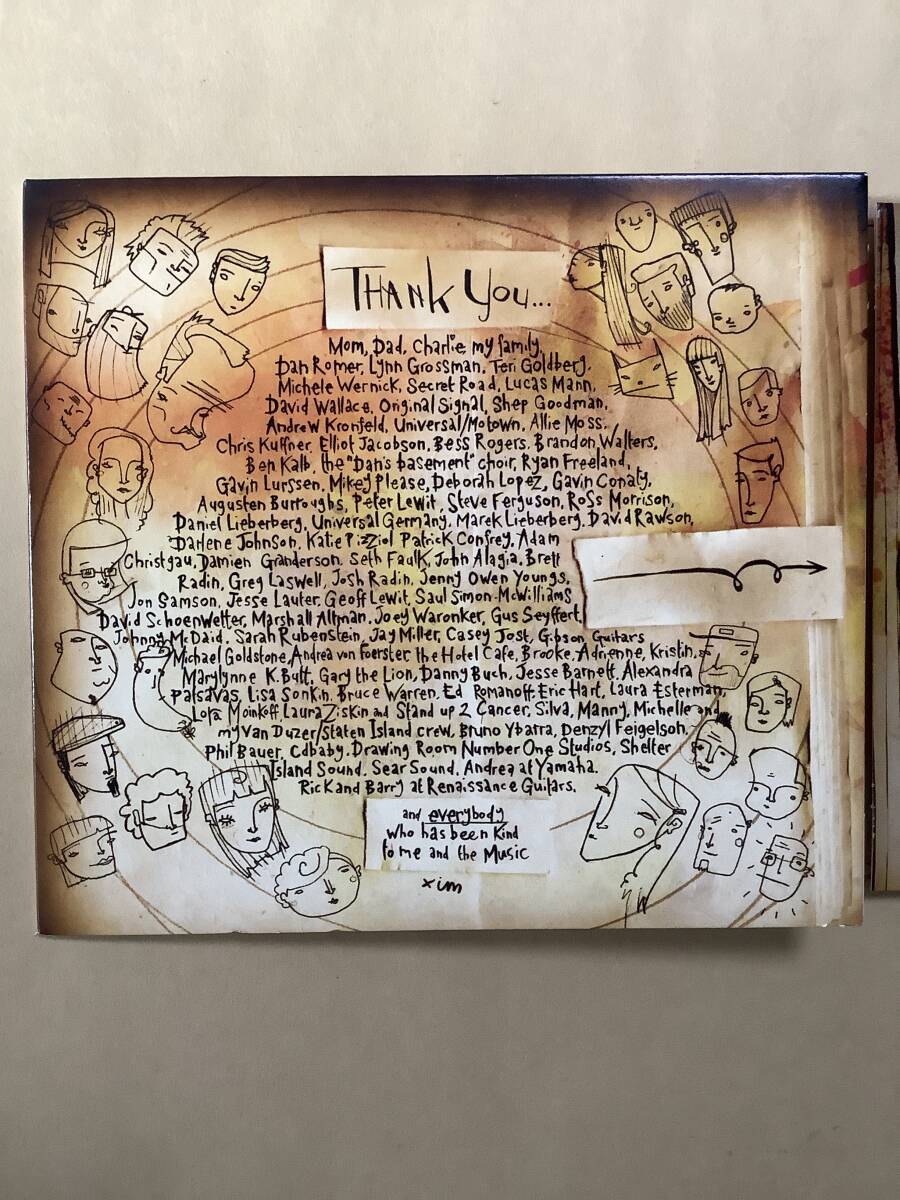 THANK YOU...
Mom, Dad, Charlie my family,
Dan Romer, Lynn Grossman, Teri Goldberg,
Michele Wernick, Secret Road, Lucas Mann,
David Wallace, Original Signal, Shep Goodman,
Andrew Kronfeld, Universal/Motown, Allie Moss,
Chris Kuffner, Elliot Jacobson, Bess Rogers, Brandon Walters,
Ben Kalb, the "Dan's basement" choir, Ryan Freeland,
Gavin Lurssen, Mikey Please, Deborah Lopez, Gavin Conaty,
Augusten Burroughs, Peter Lewit, Steve Ferguson, Ross Morrison,
Daniel Lieberberg, Universal Germany, Marek Lieberberg, David Rawson,
Darlene Johnson, Katie Pizziol Patrick Confrey, Adam
Christgau, Damien Granderson, Seth Faulk, John Alagia, Brett
Radin, Greg Laswell, Josh Radin, Jenny Owen Youngs,
Jon Samson, Jesse Lauter, Geoff Lewit, Saul Simon-McWilliams
David Schoenwetter, Marshall Altman, Joey Waronker, Gus Seyffert,
Johnny McDaid, Sarah Rubenstein, Jay Miller, Casey Jost, Gibson Guitars
Michael Goldstone, Andrea von Foerster the Hotel Cafe, Brooke, Adrienne, Kristin,
Marylynne K. Butt, Gary the Lion, Danny Buch, Jesse Barnett, Alexandra
Patsavas, Lisa Sonkin, Bruce Warren, Ed Romanoff, Eric Hart, Laura Esterman,
Lora Moinkoff, Laura Ziskin and Stand up 2 Cancer, Silva, Manny, Michelle and
my Van Duzer/Staten Island crew, Bruno Ybarra, Denzyl Feigelson,
Phil Bauer, Cdbaby, Drawing Room Number One Studios, Shelter
Island Sound, Sear Sound, Andrea at Yamaha.
Rick and Barry at Renaissance Guitars.
and everybody
who has been kind
to me and the Music
xim